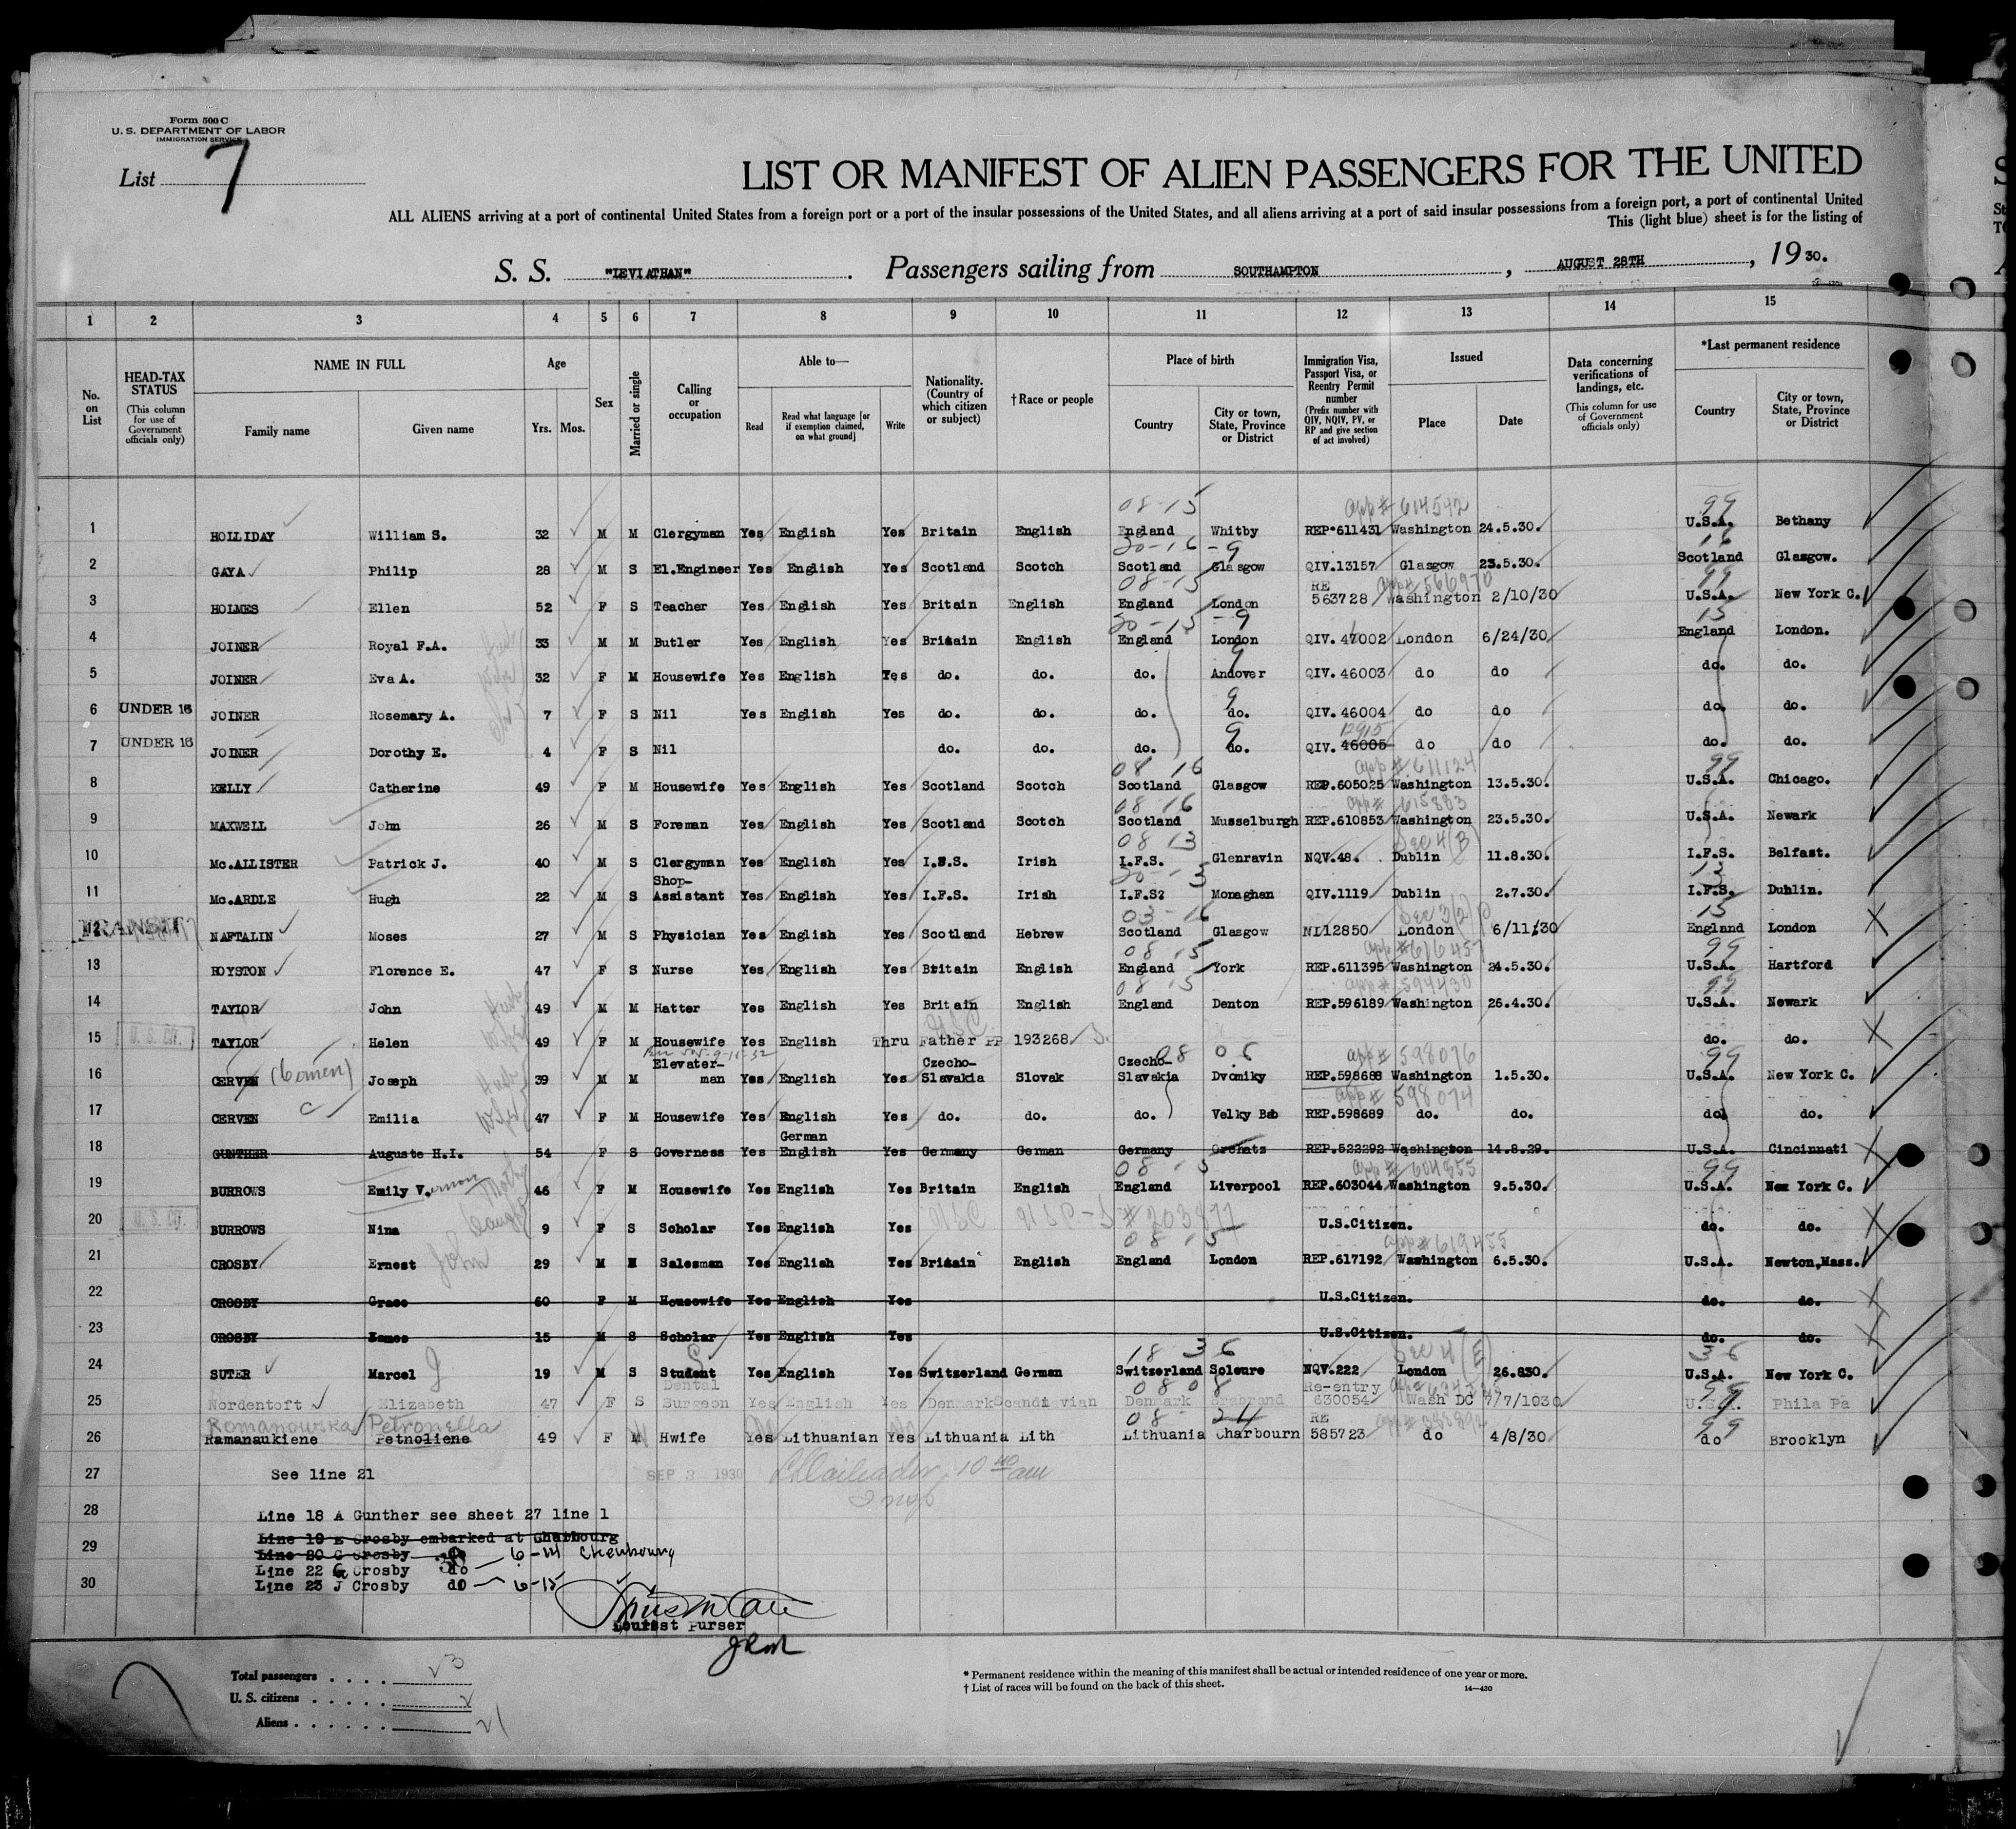 Form 500 C
U. S. DEPARTMENT OF LABOR
IMMIGRATION SERVICE
List 7
LIST OR MANIFEST OF ALIEN PASSENGERS FOR THE UNITED
ALL ALIENS arriving at a port of continental United States from a foreign port or a port of the insular possessions of the United States, and all aliens arriving at a port of said insular possessions from a foreign port, a port of continental United
This (light blue) sheet is for the listing of
S. S. "LEVIATHAN" . Passengers sailing from SOUTHAMPTON , AUGUST 28TH , 19 30.
1 2 3 4 5 6 7 8 9 10 11 12 13 14 15
No. on List
HEAD-TAX STATUS
(This column for use of Government officials only)
NAME IN FULL
Family name Given name
Age
Yrs. Mos.
Sex
Married or single
Calling or occupation
Able to—
Read Read what language [or if exemption claimed, on what ground] Write
Nationality. (Country of which citizen or subject)
† Race or people
Place of birth
Country City or town, State, Province or District
Immigration Visa, Passport Visa, or Reentry Permit number
(Prefix number with QIV, NQIV, PV, or RP and give section of act involved)
Issued
Place Date
Data concerning verifications of landings, etc.
(This column for use of Government officials only)
*Last permanent residence
Country City or town, State, Province or District
08-15 app# 614592 99
1 HOLLIDAY William S. 32 M M Clergyman Yes English Yes Britain English England Whitby REP.611431 Washington 24.5.30. U.S.A. Bethany
20-16-9 16
2 GAYA Philip 28 M S El.Engineer Yes English Yes Scotland Scotch Scotland Glasgow QIV.13157 Glasgow 23.5.30. Scotland Glasgow.
08-15 app# 566970 99
3 HOLMES Ellen 52 F S Teacher Yes English Yes Britain English England London RE 563728 Washington 2/10/30 U.S.A. New York C.
20-15-9 15
4 JOINER Royal F.A. 33 M M Butler Yes English Yes Britain English England London QIV. 47002 London 6/24/30 England London.
9
5 JOINER Eva A. 32 F M Housewife Yes English Yes do. do. do. Andover QIV. 46003 do do do. do.
9
6 UNDER 16 JOINER Rosemary A. 7 F S Nil Yes English Yes do. do. do. do. QIV. 46004 do do do. do.
9 12915
7 UNDER 16 JOINER Dorothy E. 4 F S Nil do. do. do. do. QIV. 46005 do do do. do.
08 16 app# 611124 99
8 KELLY Catherine 49 F M Housewife Yes English Yes Scotland Scotch Scotland Glasgow REP.605025 Washington 13.5.30. U.S.A. Chicago.
08-16 app# 615883
9 MAXWELL John 26 M S Foreman Yes English Yes Scotland Scotch Scotland Musselburgh REP.610853 Washington 23.5.30. U.S.A. Newark
08 13 Sec 4(B)
10 Mc.ALLISTER Patrick J. 40 M S Clergyman Yes English Yes I.F.S. Irish I.F.S. Glenravin NQV.48. Dublin 11.8.30. I.F.S. Belfast.
13
11 Mc.ARDLE Hugh 22 M S Shop-Assistant Yes English Yes I.F.S. Irish I.F.S? Monaghan QIV.1119 Dublin 2.7.30. I.F.S. Dublin.
03-16 Sec 3(2) 15
12 TRANSIT NAFTALIN Moses 27 M S Physician Yes English Yes Scotland Hebrew Scotland Glasgow NI12850 London 6/11/30 England London
08 15 app# 616457 99
13 ROYSTON Florence E. 47 F S Nurse Yes English Yes Britain English England York REP.611395 Washington 24.5.30. U.S.A. Hartford
08 15 app# 594430 99
14 TAYLOR John 49 M M Hatter Yes English Yes Britain English England Denton REP.596189 Washington 26.4.30. U.S.A. Newark
USC
15 U. S. Cit. TAYLOR Helen 49 F M Housewife Yes English Thru Father PP 193268. do. do.
08 06 app# 598076 99
16 CERVEN Joseph 39 M M Elevater-man Yes English Yes Czecho-Slavakia Slovak Czecho-Slavakia Dvomiky REP.598688 Washington 1.5.30. U.S.A. New York C.
app# 598074
17 CERVEN Emilia 47 F M Housewife Yes English Yes do. do. do. Velky Bab REP.598689 do. do. do. do.
18 GUNTHER Auguste H.I. 54 F S Governess Yes German English Yes Germany German Germany Orchatz REP.522292 Washington 14.8.29. U.S.A. Cincinnati
08-15 app# 604855 99
19 BURROWS Emily Vernon 46 F M Housewife Yes English Yes Britain English England Liverpool REP.603044 Washington 9.5.30. U.S.A. New York C.
20 U. S. Cit. BURROWS Nina 9 F S Scholar Yes English Yes USC U.S.Citizen. do. do.
08 15 app# 619455
21 CROSBY Ernest John 29 M M Salesman Yes English Yes Britain English England London REP.617192 Washington 6.5.30. U.S.A. Newton,Mass.
22 CROSBY Grace 60 F M Housewife Yes English Yes U.S.Citizen. do. do.
23 CROSBY James 15 M S Scholar Yes English Yes U.S.Citizen. do. do.
18 36 Sec 4 (E) 36
24 SUTER Marcel J 19 M S Student Yes English Yes Switzerland German Switzerland Soleure NQV.222 London 26.830. U.S.A. New York C.
08 08 99
25 Nordentoft Elizabeth 47 F S Dental Surgeon Yes English Yes Denmark Scandinavian Denmark Brabrand Re-entry 630054 Wash DC 7/7/1930 U.S.A. Phila Pa
Romanowska Petronella 08- 24 99
26 Ramanaukiene Petnoliene 49 F M Hwife Yes Lithuanian Yes Lithuania Lith Lithuania Charbourn RE 585723 do 4/8/30 do Brooklyn
27 See line 21 SEP 3 1930 10 40 am
28 Line 18 A Gunther see sheet 27 line 1
29 Line 19 E Crosby embarked at Cherbourg
Line 20 G Crosby do 6-14 Cherbourg
Line 22 G Crosby do
30 Line 23 J Crosby do 6-15
Tourist Purser
Total passengers . . . . 23
U. S. citizens . . . . . 2
Aliens . . . . . . 21
* Permanent residence within the meaning of this manifest shall be actual or intended residence of one year or more.
† List of races will be found on the back of this sheet.
14—430